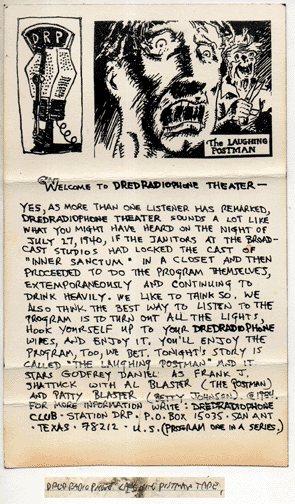 DRP
"The LAUGHING
POSTMAN
WELCOME TO DREDRADIOPHONE THEATER—
YES, AS MORE THAN ONE LISTENER HAS REMARKED,
DREDRADIOPHONE THEATER SOUNDS A LOT LIKE
WHAT YOU MIGHT HAVE HEARD ON THE NIGHT OF
JULY 27, 1940, IF THE JANITORS AT THE BROAD-
CAST STUDIOS HAD LOCKED THE CAST OF
"INNER SANCTUM" IN A CLOSET AND THEN
PROCEEDED TO DO THE PROGRAM THEMSELVES,
EXTEMPORANEOUSLY AND CONTINUING TO
DRINK HEAVILY. WE LIKE TO THINK SO. WE
ALSO THINK THE BEST WAY TO LISTEN TO THE
PROGRAM IS TO TURN OUT ALL THE LIGHTS,
HOOK YOURSELF UP TO YOUR DREDRADIOPHONE
WIRES, AND ENJOY IT. YOU'LL ENJOY THE
PROGRAM, TOO, WE BET. TONIGHT'S STORY IS
CALLED "THE LAUGHING POSTMAN" M.D. IT
STARS GODFREY DANIEL AS FRANK J.
SHATTUCK WITH AL BLASTER (THE POSTMAN)
AND PATTY BLASTER (BETTY JOHNSON). ©1984
FOR MORE INFORMATION WRITE: DREDRADIOPHONE
CLUB · STATION DRP · P.O. BOX 15035 · SAN ANT.
· TEXAS · 78212 · U.S. (PROGRAM ONE IN A SERIES.)
DREDRADIOPHONE LAUGHING POSTMAN TAPE,